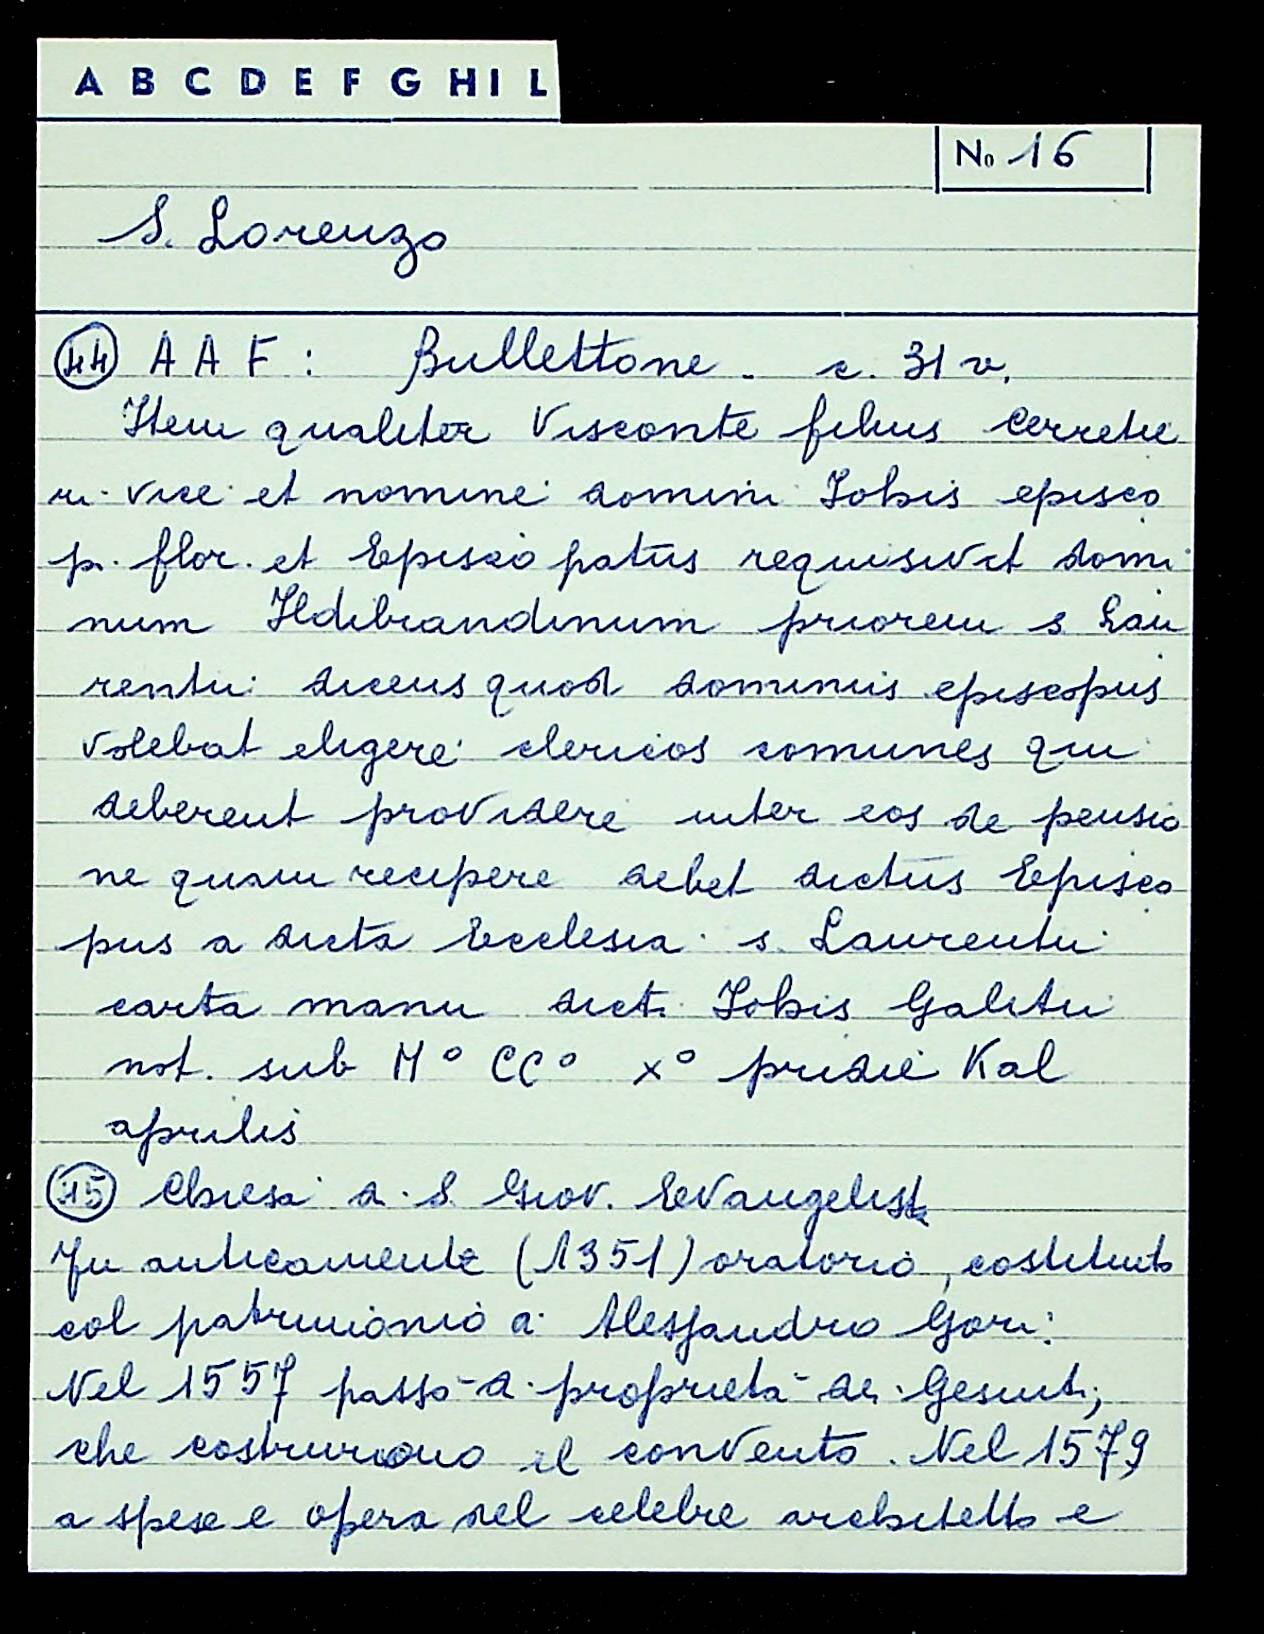 A B C D E F G H I L
No 16
S. Lorenzo
44 A A F : Bullettone. c. 31 v.
Item qualiter Visconte filius Cerretie
ri vice et nomine domini Iohis episco
p. flor. et Episcopatus requisivit domi
num Ildibrandinum priorem s. Lau
rentii dicens quod dominus episcopus
volebat eligere clericos comunes qui
deberent providere inter eos de pensio
ne quam recipere debet dictus Episco
pus a dicta Ecclesia s. Laurentii
carta manu dict. Iohis Galitii
not. sub M° CC° X° pridie Kal
aprilis
45 Chiesa d. S. Giov. Evangelista
Fu anticamente (1351) oratorio, costituito
col patrimonio di Alessandro Gori.
Nel 1557 passò di proprietà dei Gesuiti,
che costruirono il convento. Nel 1579
a spese e opera del celebre architetto e